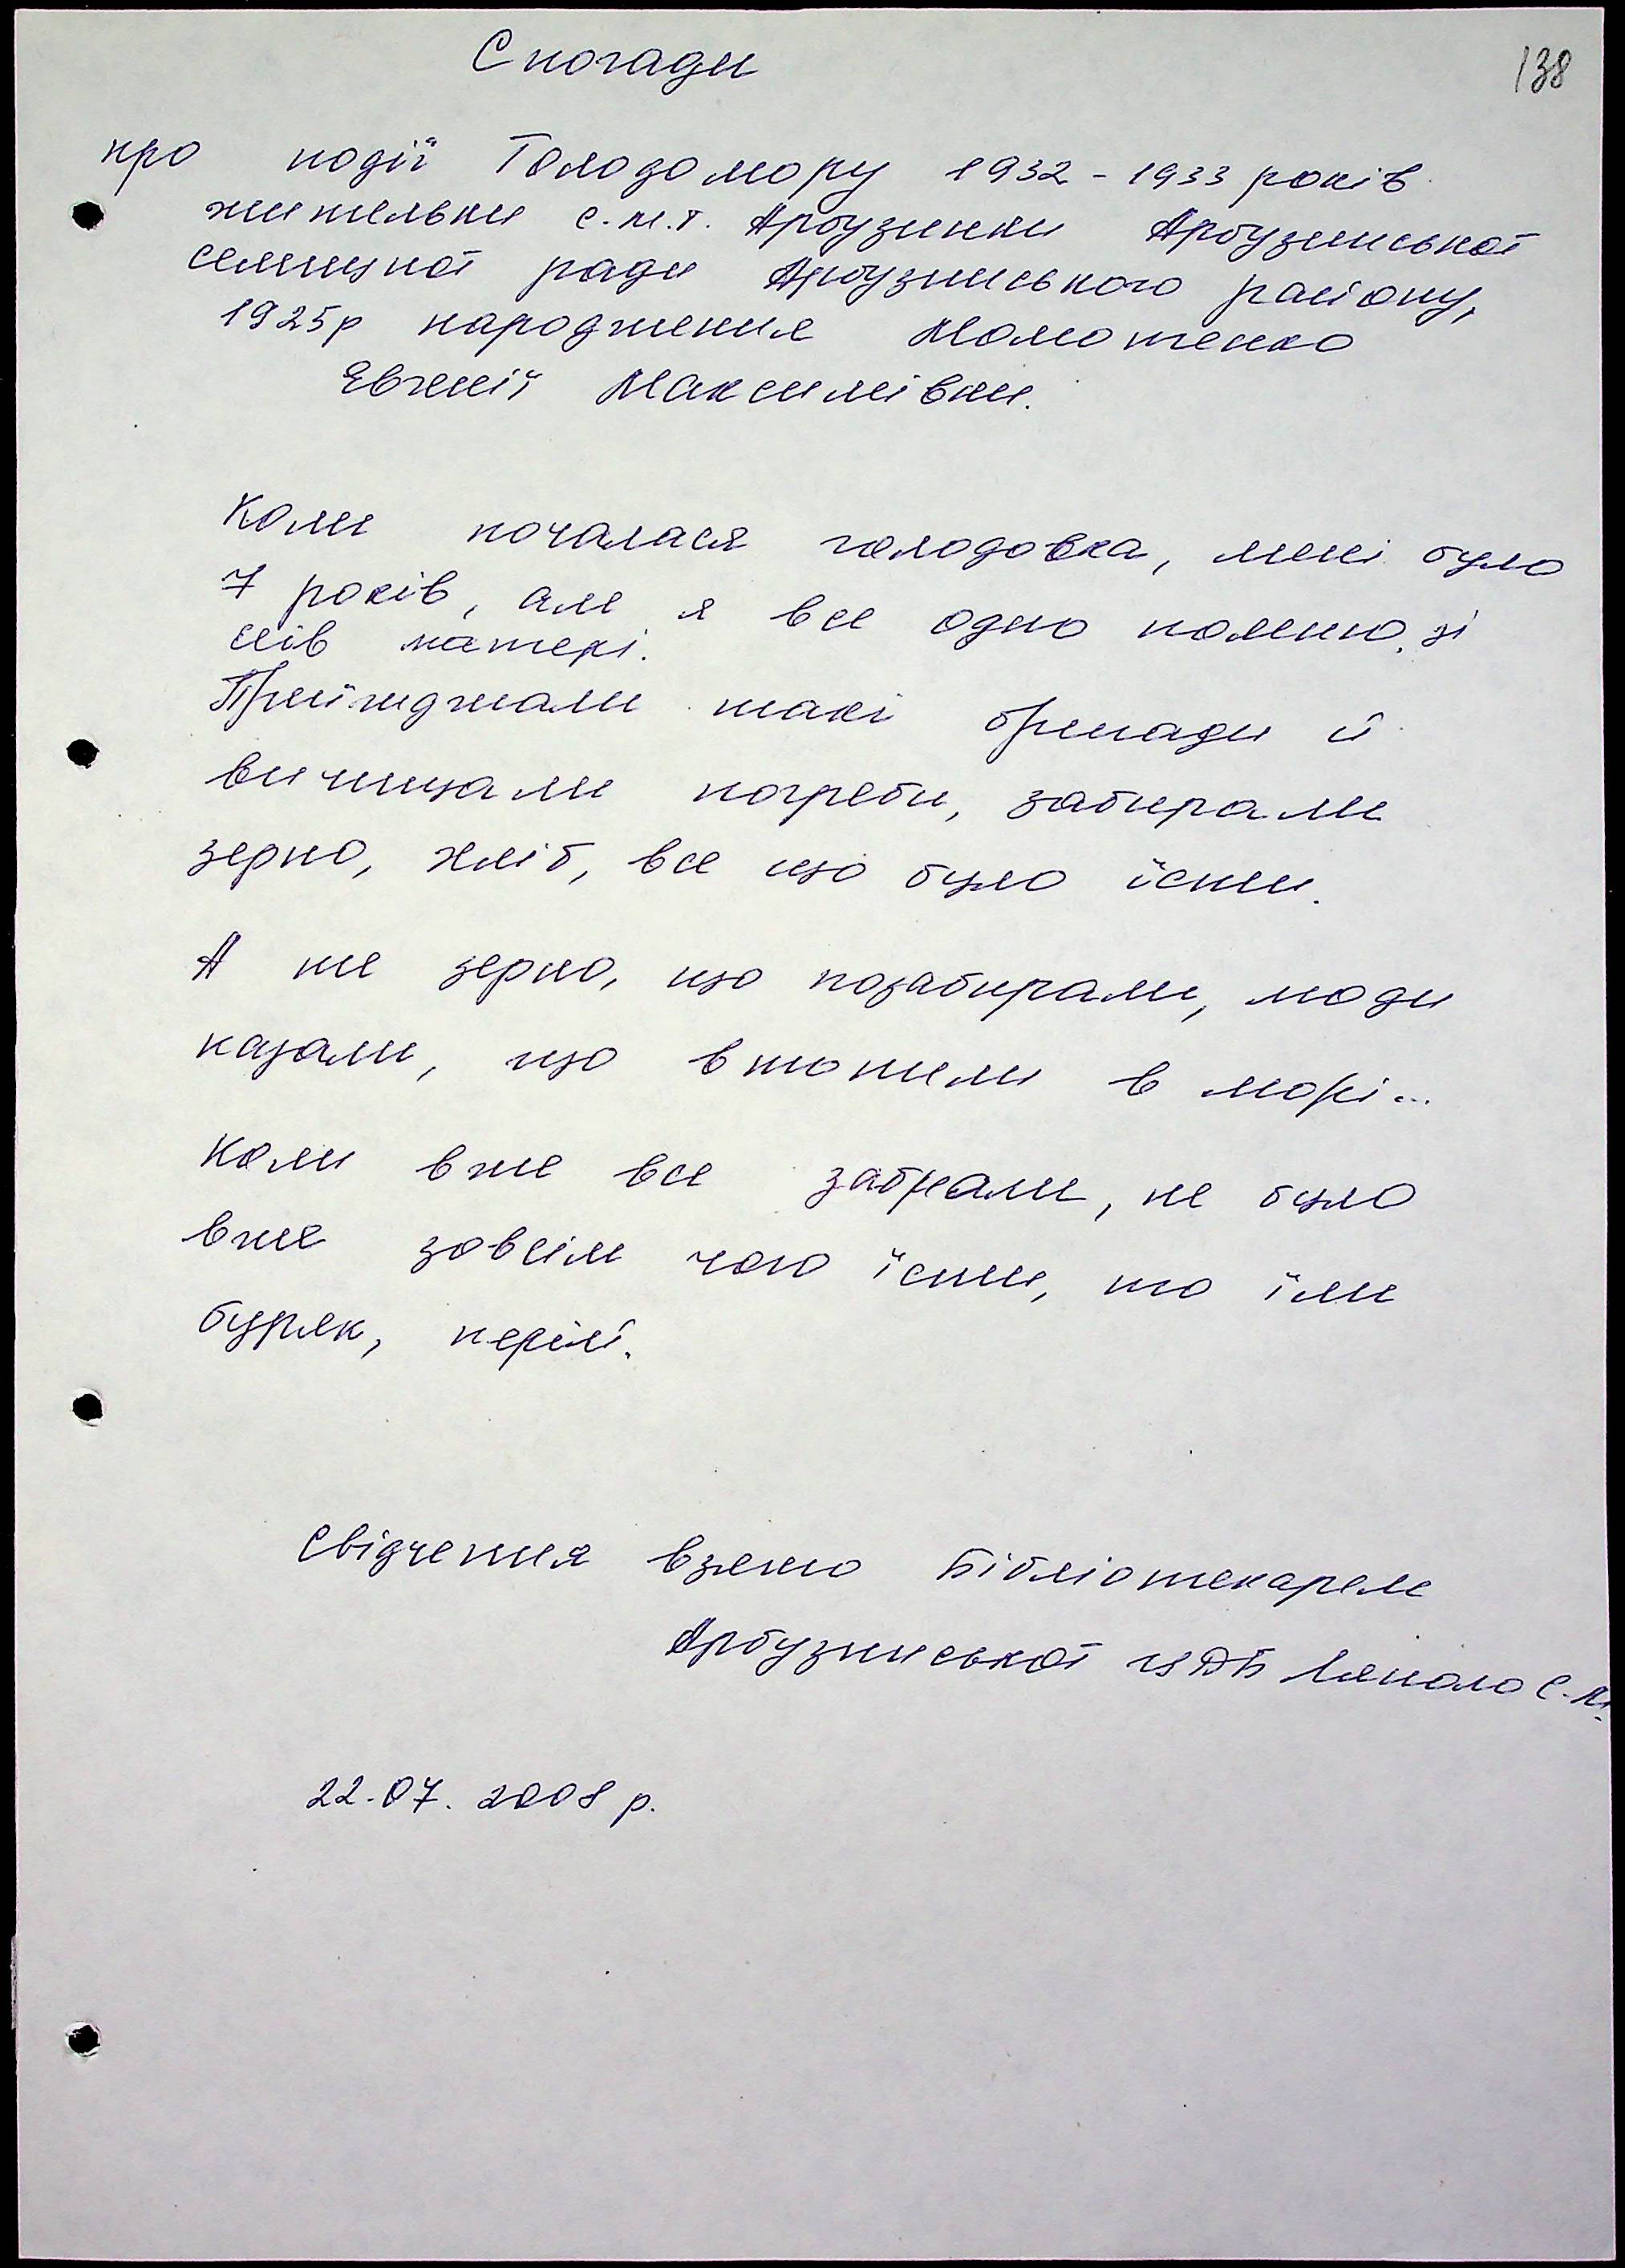 138
Спогади
про події Голодомору 1932 - 1933 років
жительки с.м.т. Арбузинки Арбузинської
селищної ради Арбузинського району,
1925р народження Молотенко
Євгенії Максимівни.
Коли почалася голодовка, мені було
7 років, але я все одно помню, зі
слів матері.
Приїжджали такі бригади й
вичищали погреби, забирали
зерно, хліб, все що було їсти.
А те зерно, що позабирали, люди
казали, що втопили в морі...
Коли вже все забрали, не було
вже зовсім чого їсти, то їли
буряк, перій.
Свідчення взято Бібліотекарем
Арбузинської ЦДБ С.М.
22.07.2008 р.